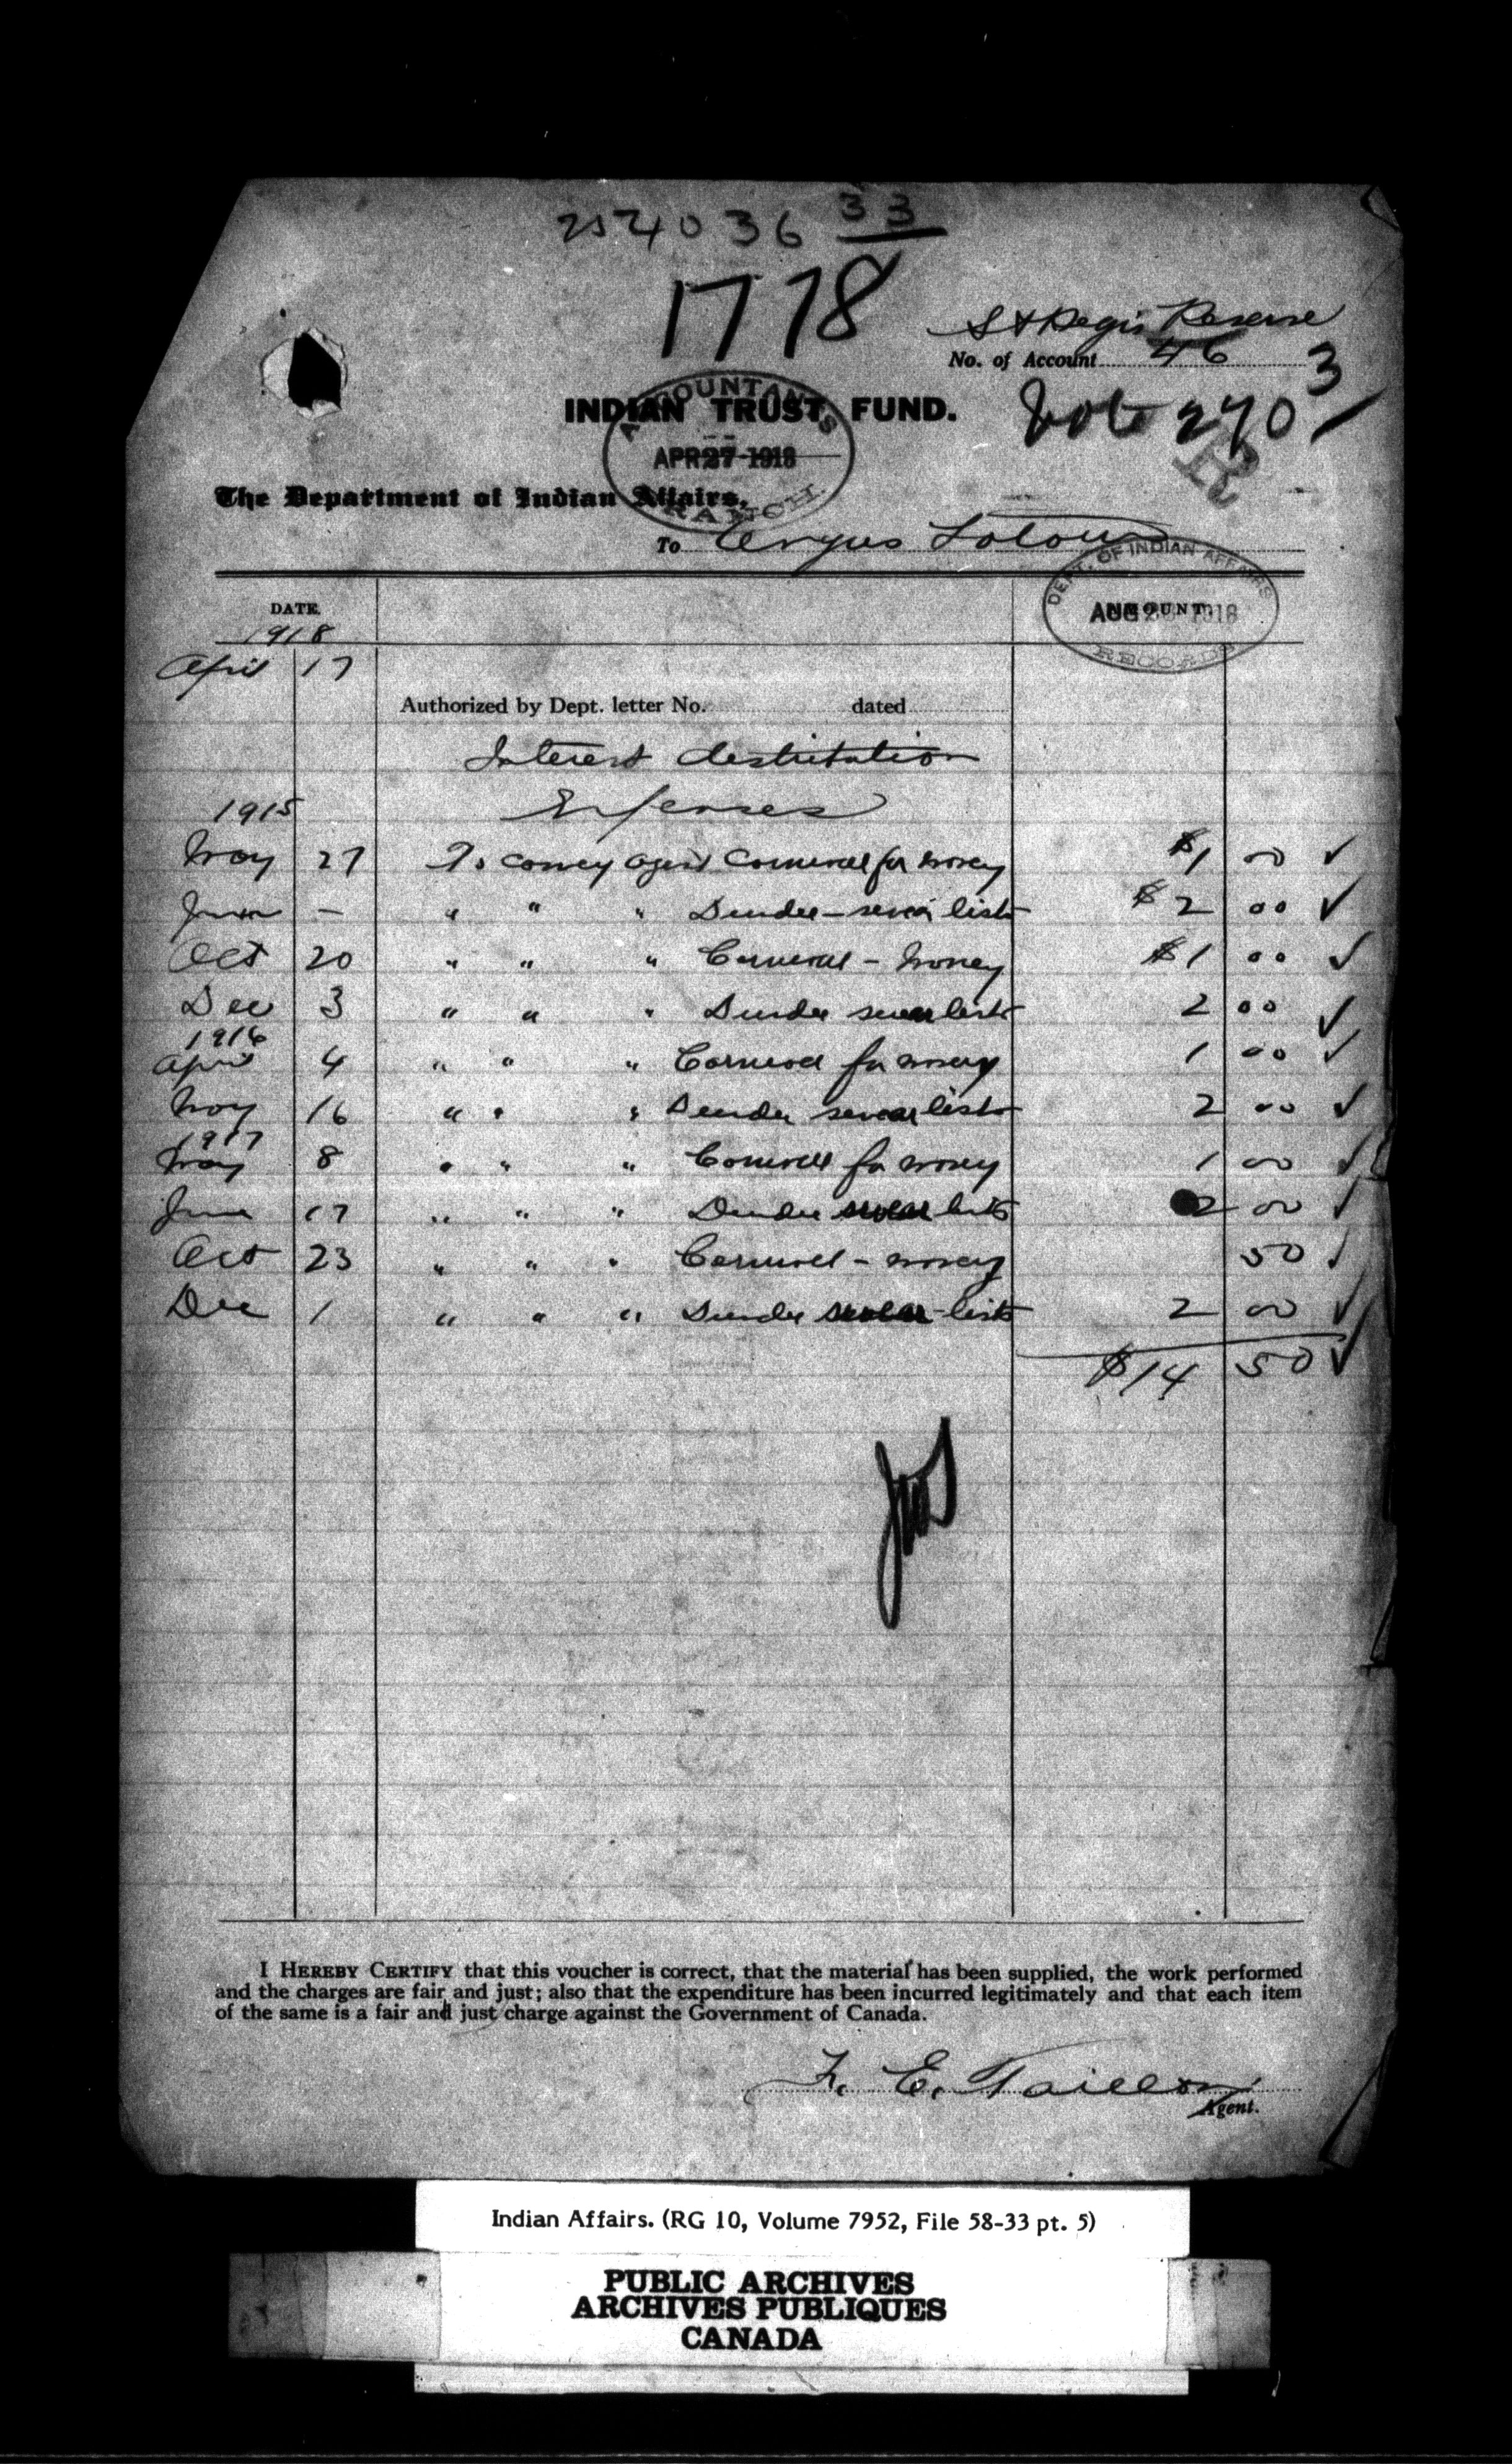 254036 33
1778
St Regis Reserve
No. of Account 46
INDIAN TRUST FUND.
270 3
ACCOUNTANTS
APR 27 1918
BRANCH
R
The Department of Indian Affairs,
To Angus
DEPT. OF INDIAN AFFAIRS
AUG 1918
RECORDS
DATE. AMOUNT.
1918
April 17
Authorized by Dept. letter No. dated
Interest distribution
Expenses
1915
May 27 To convey agent Cornwall for money $1 00 ✓
June – " " " Dundee – swear lists $2 00 ✓
Oct 20 " " " Cornwall – money $1 00 ✓
Dec 3 " " " Dundee swear lists 2 00 ✓
1916
April 4 " " " Cornwall for money 1 00 ✓
May 16 " " " Dundee swear lists 2 00 ✓
1917
May 8 " " " Cornwall for money 1 00 ✓
June 17 " " " Dundee swear lists 2 00 ✓
Oct 23 " " " Cornwall – money 50 ✓
Dec 1 " " " Dundee swear – lists 2 00 ✓
$14 50 ✓
I HEREBY CERTIFY that this voucher is correct, that the material has been supplied, the work performed
and the charges are fair and just; also that the expenditure has been incurred legitimately and that each item
of the same is a fair and just charge against the Government of Canada.
F. E. Taillon
Agent.
Indian Affairs. (RG 10, Volume 7952, File 58-33 pt. 5)
PUBLIC ARCHIVES
ARCHIVES PUBLIQUES
CANADA